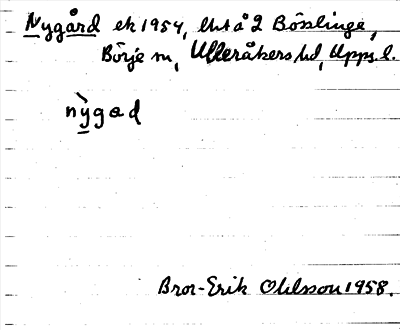 Nygård ek 1954, lht å 2 Bösslinge,
Börje sn, Ulleråkers hd, Upps. l.
nỳgad
Bror-Erik Ohlsson 1958.